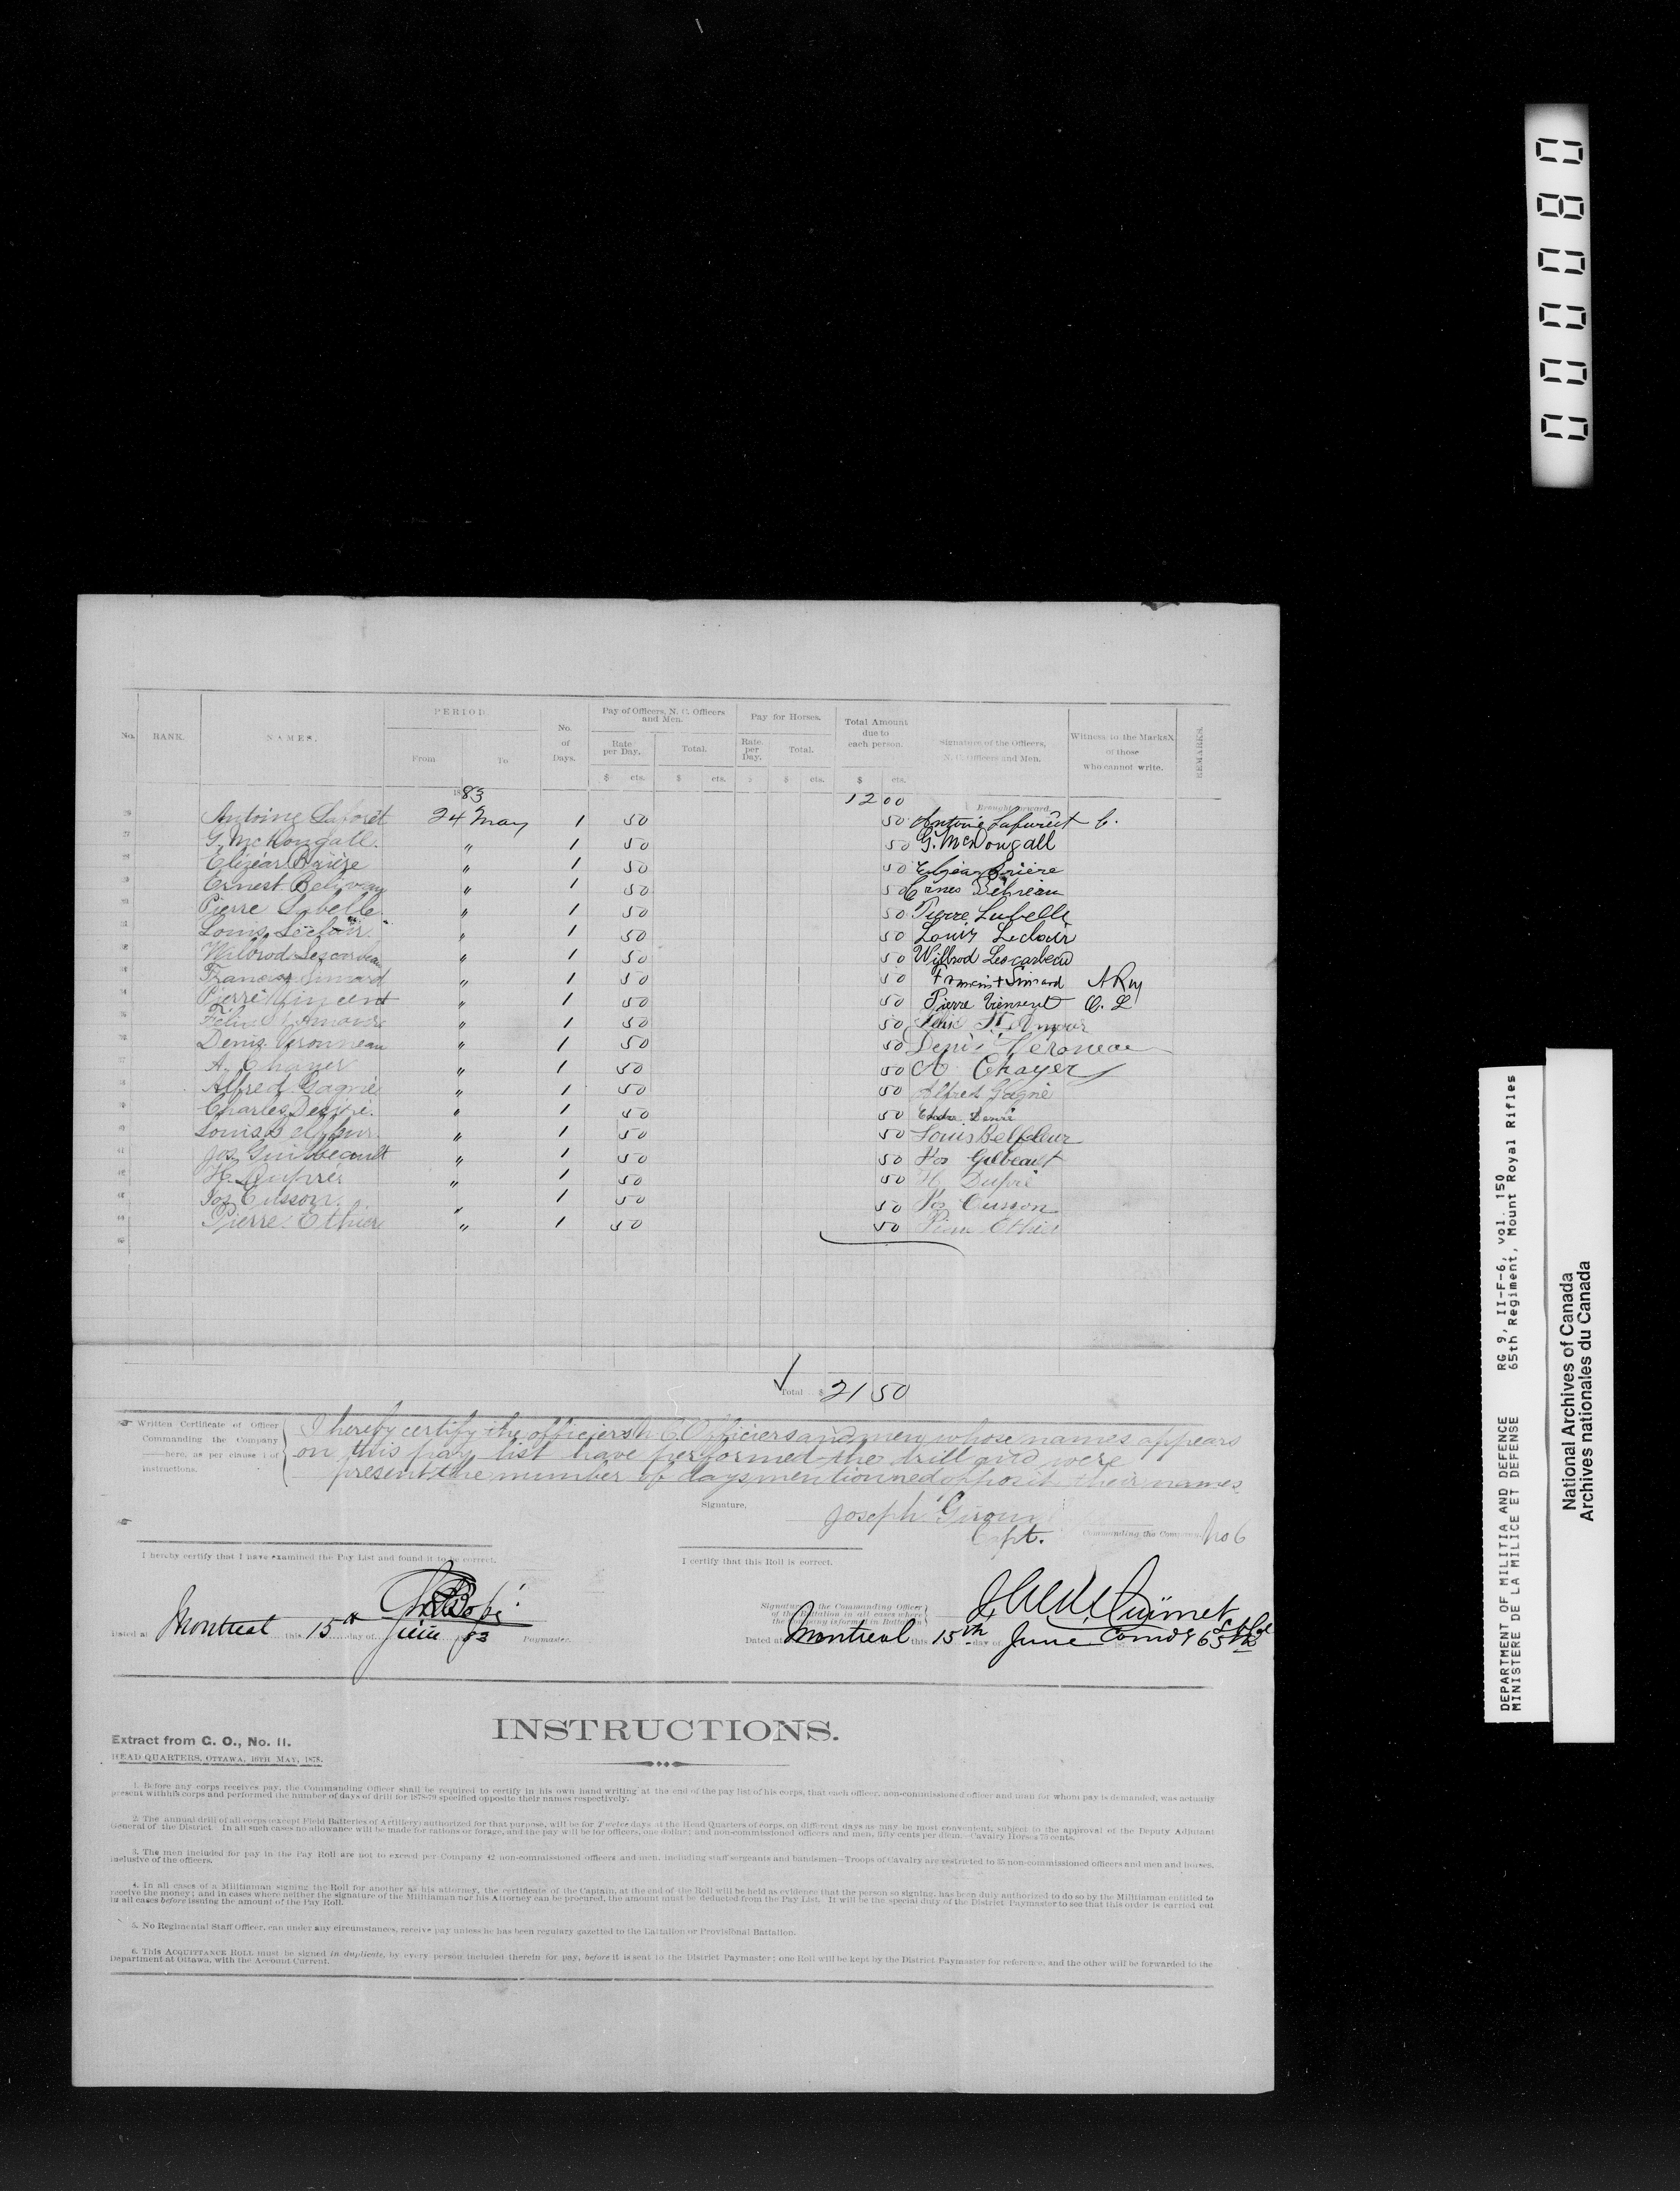 000080
No. RANK. NAMES. PERIOD. From To No. of Days. Pay of Officers, N. C. Officers and Men. Rate per Day. Total. Pay for Horses. Rate per Day. Total. Total Amount due to each person. Signature of the Officers, N. C. Officers and Men. Witness to the Marks X of those who cannot write. REMARKS.
$ cts. $ cts. $ cts. $ cts.
1883 12 00 Brought forward.
Antoine Laforêt 24 May 1 50 50 Antoine Laforêt C.
G. McDougall. " 1 50 50 G. McDougall
Elizéar Brière " 1 50 50 Elzéar Brière
Ernest Beliveau " 1 50 50 Ernes
Pierre Labelle " 1 50 50 Pierre Labelle
Louis Leclair " 1 50 50 Louis Leclair
Wilbrod Lescarbeau " 1 50 50 Wilbrod Lescarbeau
Francis Simard " 1 50 50 Francis + Simard A Roy
Pierre Vincent " 1 50 50 Pierre Vinsent C. L
Felix St Amour " 1 50 50 Felix St Amour
Denis Veronneau " 1 50 50 Denis Veroneau
A. Chayer " 1 50 50 A Chayer
Alfred Gagné " 1 50 50 Alfred Gagné
Charles " 1 50 50
Louis Belfleur " 1 50 50 Louis Belfleur
Jos Guilbeault " 1 50 50 Jos Gilbeault
H. Dupré " 1 50 50 H. Dupré
Jos Cusson " 1 50 50 Jos Cusson
Pierre Ethier " 1 50 50 Pierre Ethier
Total $ 21 50
Written Certificate of Officer Commanding the Company here, as per clause 1 of instructions.
I hereby certify the officiers N. C. Officiers and men whose names appears
on this pay list have performed the drill and were
present the number of days mentionned oposit their names
Signature, Joseph Giroux
Capt. Commanding the Company No 6
I hereby certify that I have examined the Pay List and found it to be correct.
I certify that this Roll is correct.
Signature of the Commanding Officer of the Battalion in all cases where the Company is formed in Battalion
Ouimet
Dated at Montreal this 15th day of 83 Paymaster.
Dated at Montreal this 15th day of June Comdg 65th
INSTRUCTIONS.
Extract from G. O., No. 11.
HEAD QUARTERS, OTTAWA, 10TH MAY, 1878.
1. Before any corps receives pay, the Commanding Officer shall be required to certify in his own hand writing at the end of the pay list of his corps, that each officer, non-commissioned officer and man for whom pay is demanded, was actually
present with his corps and performed the number of days of drill for 1878-79 specified opposite their names respectively.
2. The annual drill of all corps (except Field Batteries of Artillery) authorized for that purpose, will be for Twelve days at the Head Quarters of corps, on different days as may be most convenient, subject to the approval of the Deputy Adjutant
General of the District. In all such cases no allowance will be made for rations or forage, and the pay will be for officers, one dollar; and non-commissioned officers and men, fifty cents per diem.—Cavalry Horses 75 cents.
3. The men included for pay in the Pay Roll are not to exceed per Company 42 non-commissioned officers and men, including staff sergeants and bandsmen—Troops of Cavalry are restricted to 35 non-commissioned officers and men and horses,
inclusive of the officers.
4. In all cases of a Militiaman signing the Roll for another as his attorney, the certificate of the Captain, at the end of the Roll will be held as evidence that the person so signing, has been duly authorized to do so by the Militiaman entitled to
receive the money; and in cases where neither the signature of the Militiaman nor his Attorney can be procured, the amount must be deducted from the Pay List. It will be the special duty of the District Paymaster to see that this order is carried out
in all cases before issuing the amount of the Pay Roll.
5. No Regimental Staff Officer, can under any circumstances, receive pay unless he has been regulary gazetted to the Battalion or Provisional Battalion.
6. This ACQUITTANCE ROLL must be signed in duplicate, by every person included therein for pay, before it is sent to the District Paymaster; one Roll will be kept by the District Paymaster for reference, and the other will be forwarded to the
Department at Ottawa, with the Account Current.
DEPARTMENT OF MILITIA AND DEFENCE RG 9, II-F-6, vol. 150
MINISTERE DE LA MILICE ET DEFENSE 65th Regiment, Mount Royal Rifles
National Archives of Canada
Archives nationales du Canada